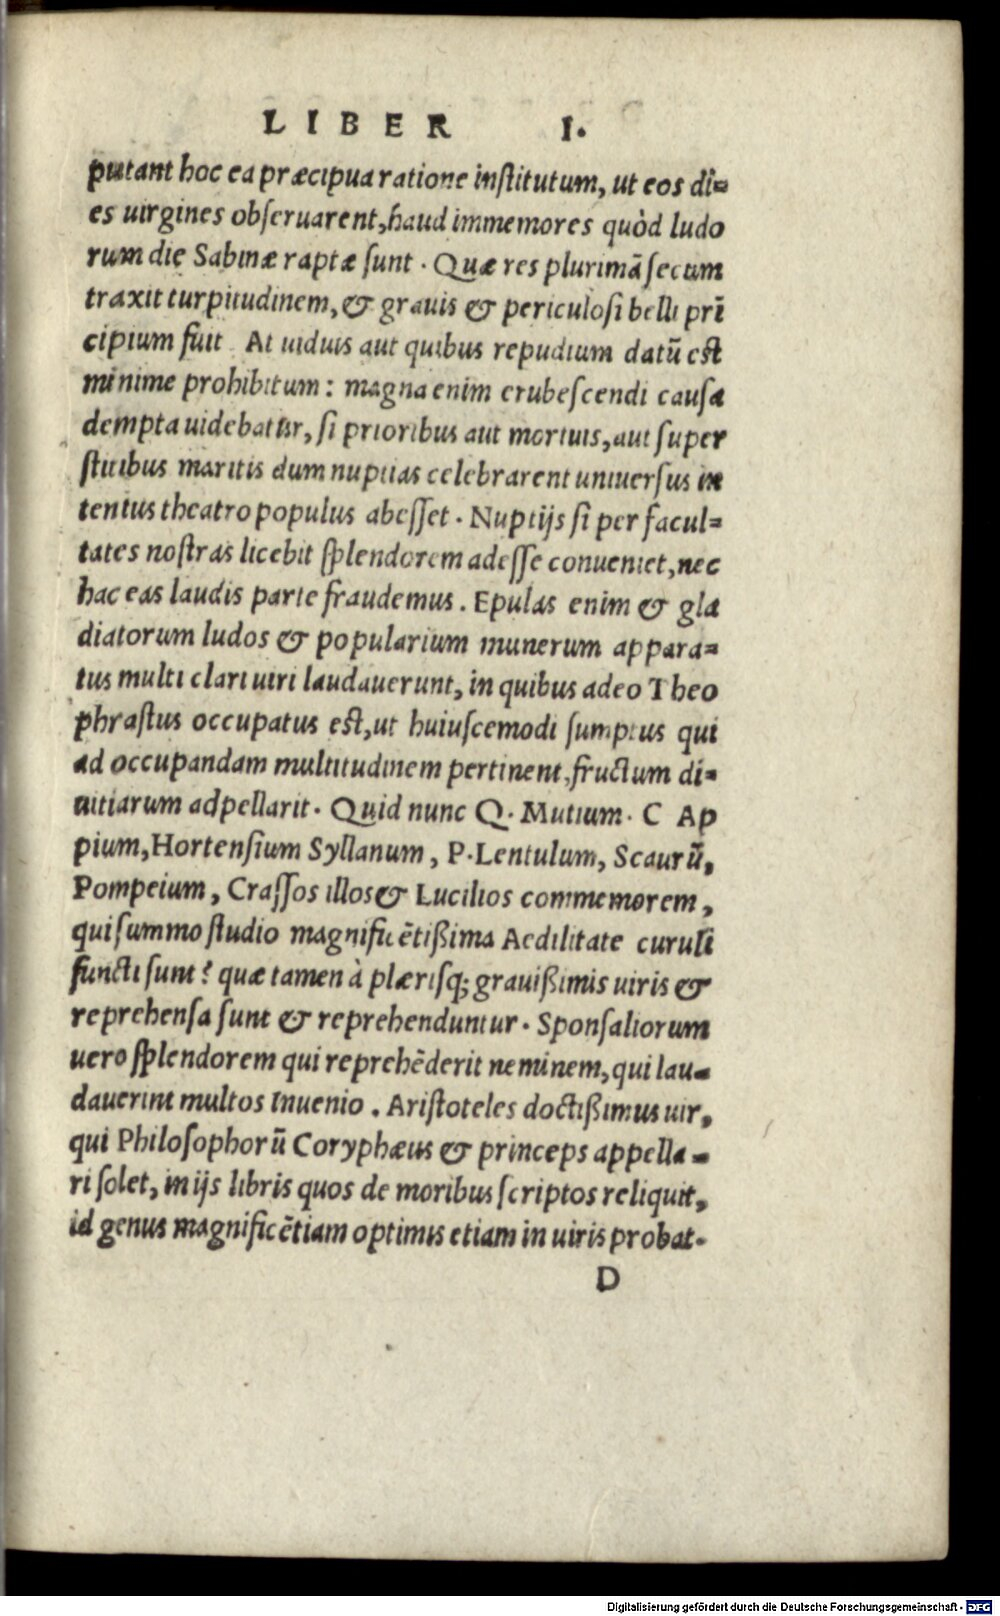 LIBER I.
putant hoc ea præcipua ratione inſtitutum, ut eos di=
es uirgines obſeruarent, haud immemores quòd ludo
rum die Sabinæ raptæ ſunt. Quæ res plurimã ſecum
traxit turpitudinem, & grauis & periculoſi belli prĩ
cipium fuit. At uiduis aut quibus repudium datũ eſt
minime prohibitum: magna enim erubeſcendi cauſa
dempta uidebatur, ſi prioribus aut mortuis, aut ſuper
ſtitibus maritis dum nuptias celebrarent uniuerſus in
tentus theatro populus abeſſet. Nuptijs ſi per facul=
tates noſtras licebit ſplendorem adeſſe conueniet, nec
hac eas laudis parte fraudemus. Epulas enim & gla
diatorum ludos & popularium munerum appara=
tus multi clari uiri laudauerunt, in quibus adeo Theo
phraſtus occupatus eſt, ut huiuſcemodi ſumptus qui
ad occupandam multitudinem pertinent, fructum di=
uitiarum adpellarit. Quid nunc Q. Mutium. C Ap
pium, Hortenſium Syllanum, P. Lentulum, Scaurũ,
Pompeium, Craſſos illos & Lucilios commemorem,
qui ſummo ſtudio magnificẽtißima Aedilitate curuli
functi ſunt? quæ tamen à plæriſq; grauißimis uiris &
reprehenſa ſunt & reprehenduntur. Sponſaliorum
uero ſplendorem qui reprehẽderit neminem, qui lau=
dauerint multos inuenio. Ariſtoteles doctißimus uir,
qui Philoſophorũ Coryphæus & princeps appella=
ri ſolet, in ijs libris quos de moribus ſcriptos reliquit,
id genus magnificẽtiam optimis etiam in uiris probat.
D
Digitalisierung gefördert durch die Deutsche Forschungsgemeinschaft - DFG